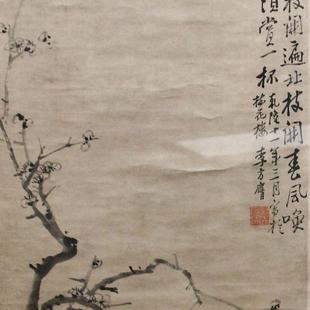 枝開遍北枝開春風喚
須賞一杯
乾隆十一年三月寫於
梅花樓 李方膺